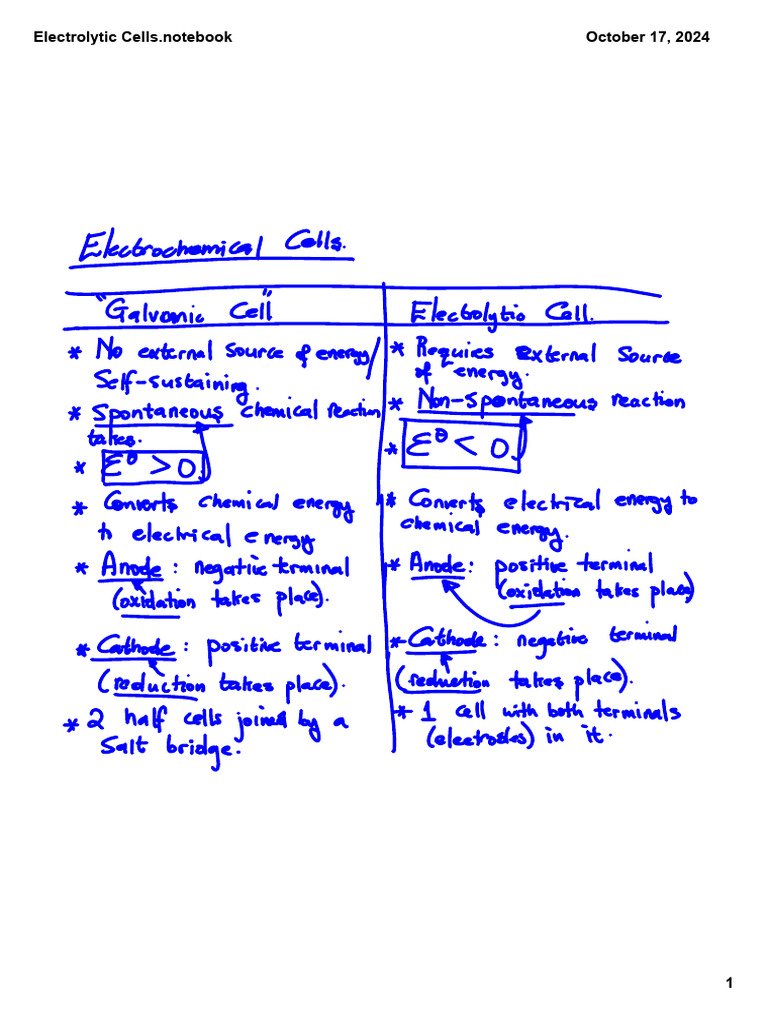 Electrolytic Cells.notebook
October 17, 2024
Electrochemical Cells.
"Galvanic Cell"
* No external source of energy/
Self-sustaining.
* Spontaneous chemical reaction
takes.
* E° > 0.
* Converts chemical energy
to electrical energy
* Anode: negative terminal
(oxidation takes place).
* Cathode: positive terminal
(reduction takes place).
* 2 half cells joined by a
Salt bridge.
Electrolytic Cell.
* Requies external source
of energy.
* Non-spontaneous reaction
* E° < 0.
* Converts electrical energy to
chemical energy.
* Anode: positive terminal
(oxidation takes place)
* Cathode: negative terminal
(reduction takes place).
* 1 cell with both terminals
(electrodes) in it.
1